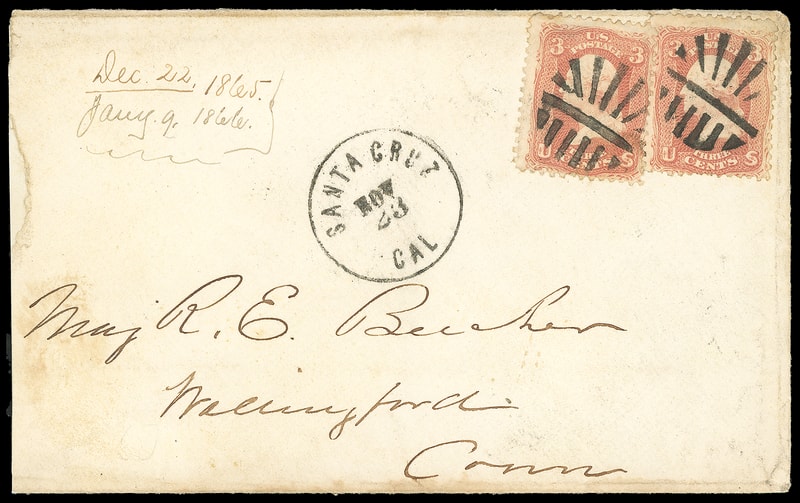 Dec. 22, 1865.
Jany. 9, 1866.
SANTA CRUZ
NOV
23
CAL
3 U.S. 3
POSTAGE
U S
3 3
U THREE S
CENTS
Maj R. E. Beecher
Wallingford
Conn